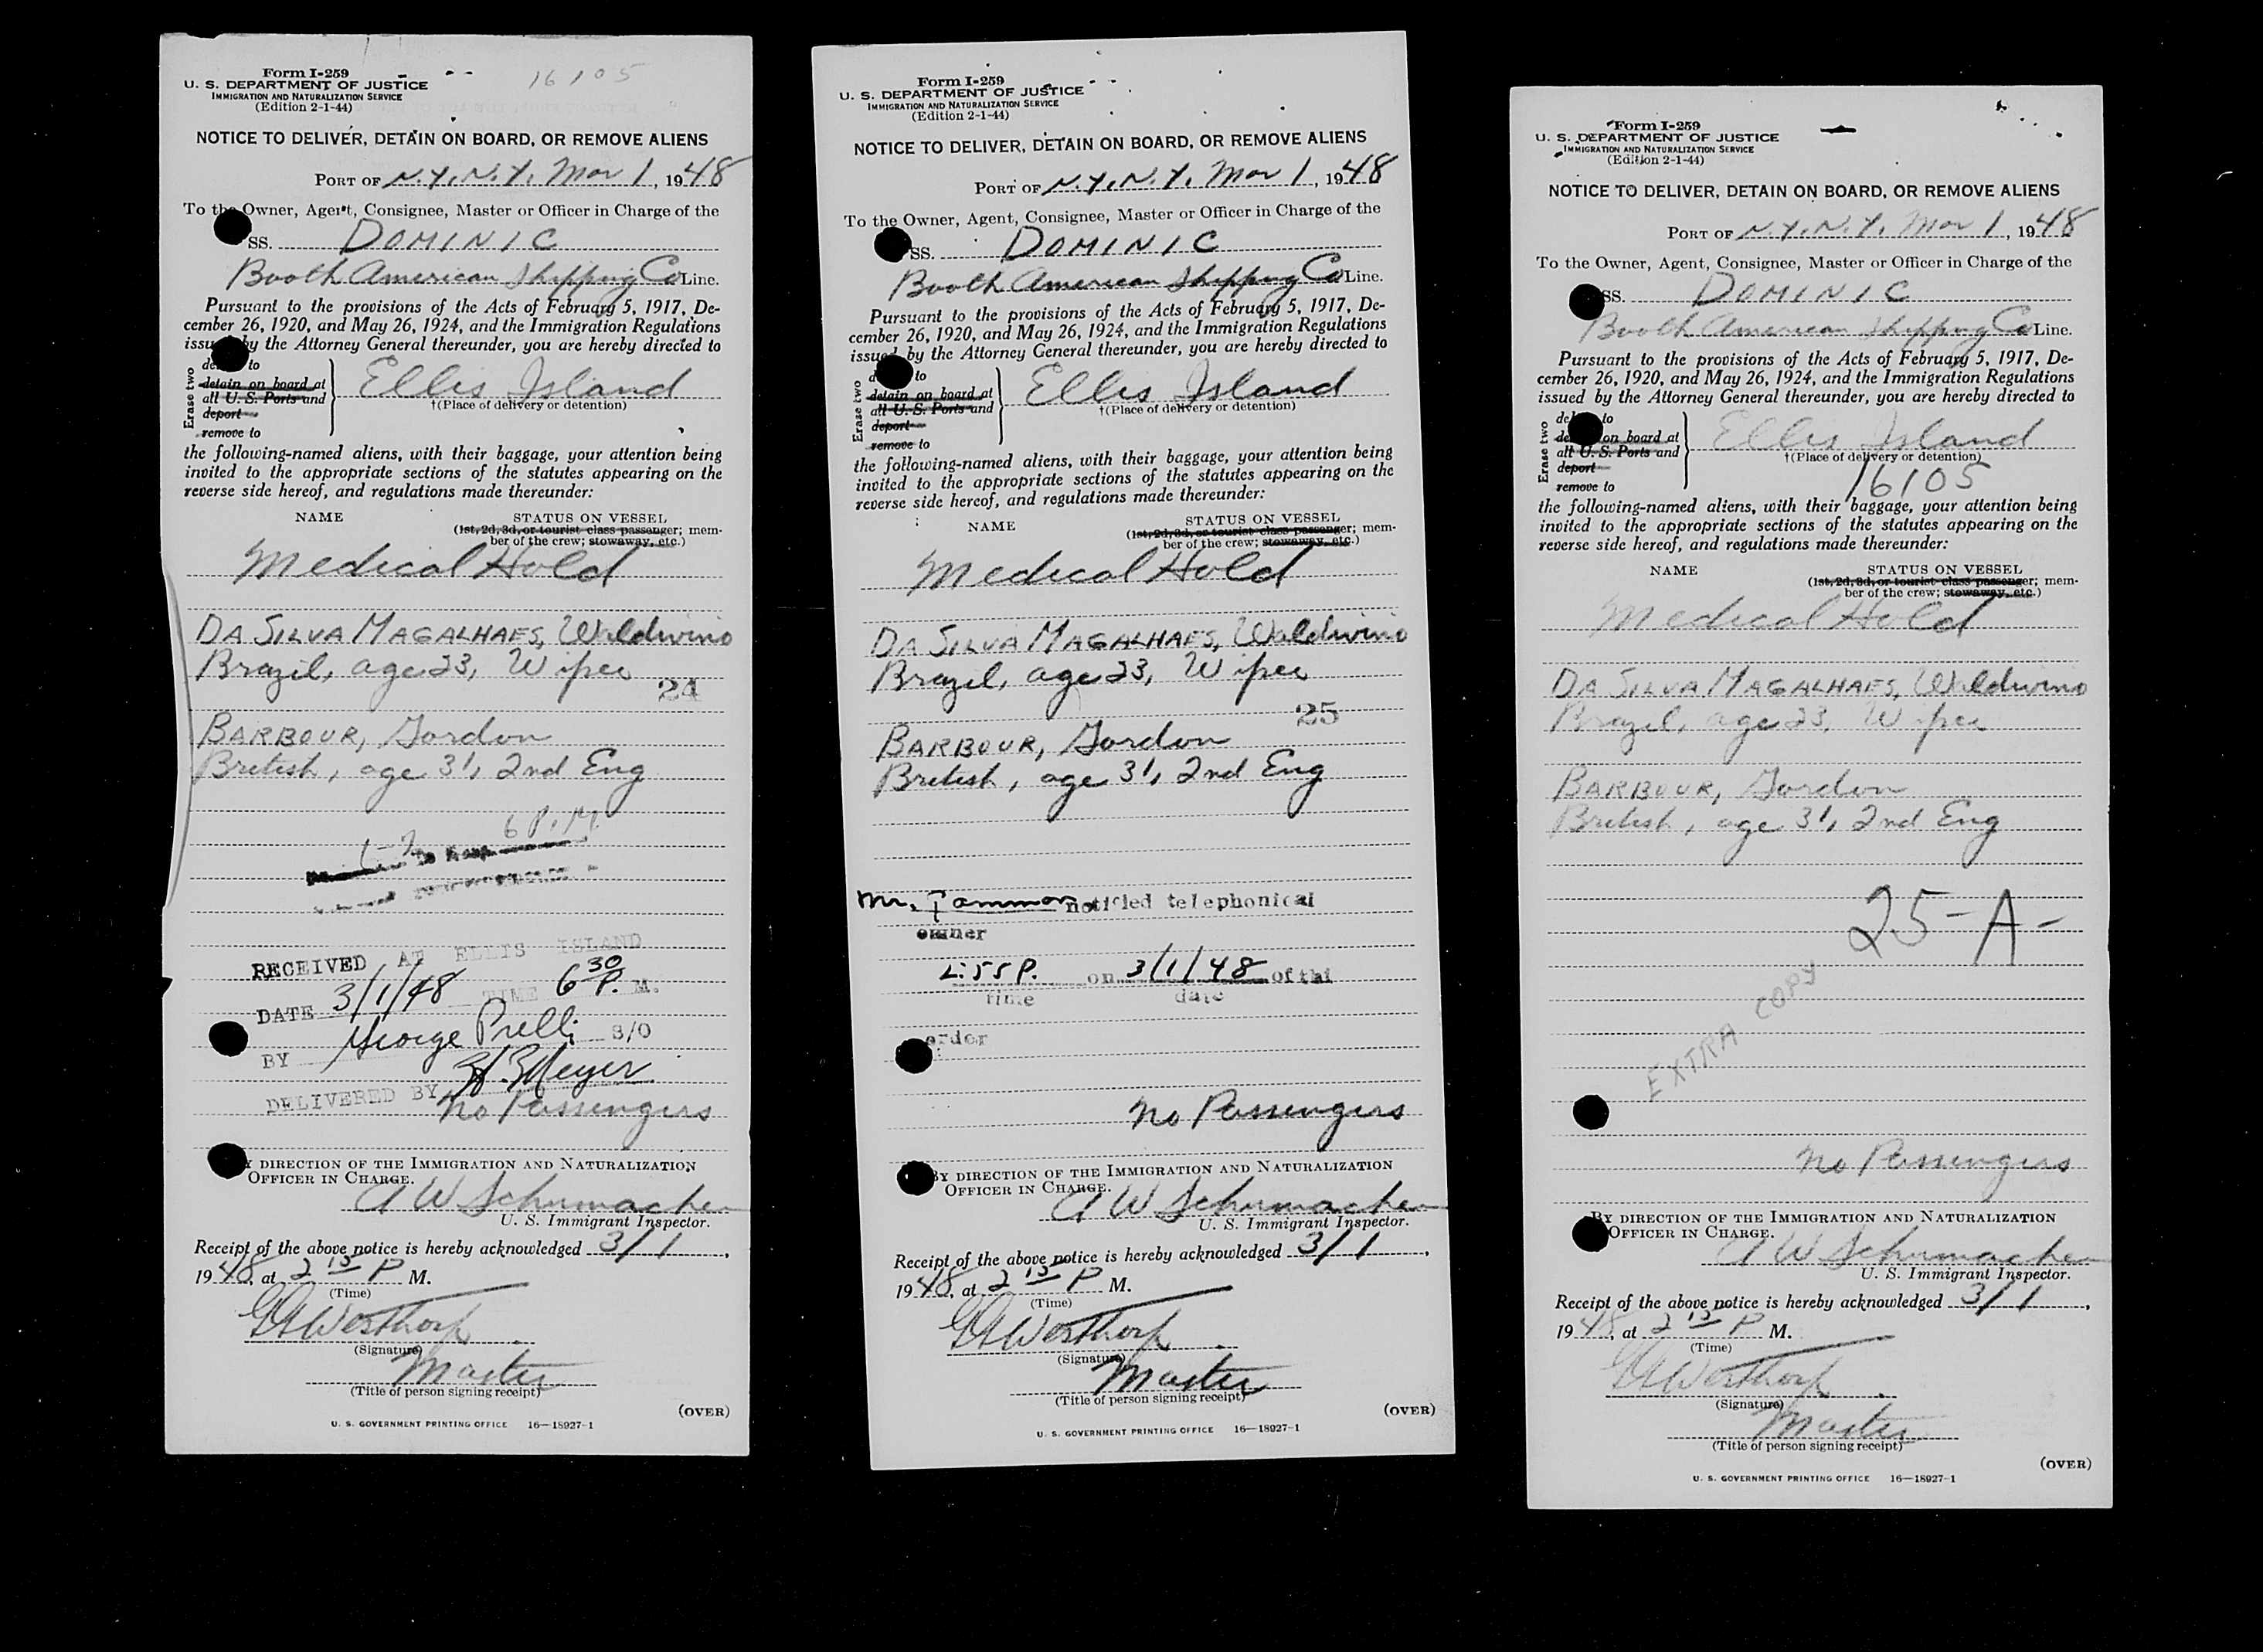 Form I-259
16105
U. S. DEPARTMENT OF JUSTICE
IMMIGRATION AND NATURALIZATION SERVICE
(Edition 2-1-44)
NOTICE TO DELIVER, DETAIN ON BOARD, OR REMOVE ALIENS
PORT OF N.Y., N.Y. Mar 1, 1948
To the Owner, Agent, Consignee, Master or Officer in Charge of the
SS. DOMINIC
Booth American Shipping Co Line.
Pursuant to the provisions of the Acts of February 5, 1917, De-
cember 26, 1920, and May 26, 1924, and the Immigration Regulations
issued by the Attorney General thereunder, you are hereby directed to
Erase two
to
detain on board at
all U. S. Ports and
deport
remove to
Ellis Island
†(Place of delivery or detention)
the following-named aliens, with their baggage, your attention being
invited to the appropriate sections of the statutes appearing on the
reverse side hereof, and regulations made thereunder:
NAME STATUS ON VESSEL
(1st, 2d, 3d, or tourist class passenger; mem-
ber of the crew; stowaway, etc.)
Medical Hold
DA SILVA MAGALHAES, Waldwino
Brazil, age 23, Wiper
24
BARBOUR, Gordon
British, age 31, 2nd Eng
6 P.M.
RECEIVED AT ELLIS ISLAND
DATE 3/1/48 TIME 6 30 P. M.
BY George Prelli S/O
DELIVERED BY Meyer
No Passengers
BY DIRECTION OF THE IMMIGRATION AND NATURALIZATION
OFFICER IN CHARGE.
A W Schumacher
U. S. Immigrant Inspector.
Receipt of the above notice is hereby acknowledged 3/1,
1948, at 2 15 P M.
(Time)
Worthorp
(Signature)
Master
(Title of person signing receipt)
(OVER)
U. S. GOVERNMENT PRINTING OFFICE 16—18927-1
Form I-259
U. S. DEPARTMENT OF JUSTICE
IMMIGRATION AND NATURALIZATION SERVICE
(Edition 2-1-44)
NOTICE TO DELIVER, DETAIN ON BOARD, OR REMOVE ALIENS
PORT OF N.Y., N.Y. Mar 1, 1948
To the Owner, Agent, Consignee, Master or Officer in Charge of the
SS. DOMINIC
Booth American Shipping Co Line.
Pursuant to the provisions of the Acts of February 5, 1917, De-
cember 26, 1920, and May 26, 1924, and the Immigration Regulations
issued by the Attorney General thereunder, you are hereby directed to
Erase two
to
detain on board at
all U. S. Ports and
deport
remove to
Ellis Island
†(Place of delivery or detention)
the following-named aliens, with their baggage, your attention being
invited to the appropriate sections of the statutes appearing on the
reverse side hereof, and regulations made thereunder:
NAME STATUS ON VESSEL
(1st, 2d, 3d, or tourist class passenger; mem-
ber of the crew; stowaway, etc.)
Medical Hold
DA SILVA MAGALHAES, Waldwino
Brazil, age 23, Wiper
25
BARBOUR, Gordon
British, age 31, 2nd Eng
Mr. notified telephonical
owner
55 P. on 3/1/48 of thi
time date
order
No Passengers
BY DIRECTION OF THE IMMIGRATION AND NATURALIZATION
OFFICER IN CHARGE.
A W Schumacher
U. S. Immigrant Inspector.
Receipt of the above notice is hereby acknowledged 3/1,
1948, at 2 15 P M.
(Time)
Worthorp
(Signature)
Master
(Title of person signing receipt)
(OVER)
U. S. GOVERNMENT PRINTING OFFICE 16—18927-1
Form I-259
U. S. DEPARTMENT OF JUSTICE
IMMIGRATION AND NATURALIZATION SERVICE
(Edition 2-1-44)
NOTICE TO DELIVER, DETAIN ON BOARD, OR REMOVE ALIENS
PORT OF N.Y., N.Y. Mar 1, 1948
To the Owner, Agent, Consignee, Master or Officer in Charge of the
SS. DOMINIC
Booth American Shipping Co Line.
Pursuant to the provisions of the Acts of February 5, 1917, De-
cember 26, 1920, and May 26, 1924, and the Immigration Regulations
issued by the Attorney General thereunder, you are hereby directed to
Erase two
to
on board at
all U. S. Ports and
deport
remove to
Ellis Island
†(Place of delivery or detention)
16105
the following-named aliens, with their baggage, your attention being
invited to the appropriate sections of the statutes appearing on the
reverse side hereof, and regulations made thereunder:
NAME STATUS ON VESSEL
(1st, 2d, 3d, or tourist class passenger; mem-
ber of the crew; stowaway, etc.)
Medical Hold
DA SILVA MAGALHAES, Waldwino
Brazil, age 23, Wiper
BARBOUR, Gordon
British, age 31, 2nd Eng
25-A-
EXTRA COPY
No Passengers
BY DIRECTION OF THE IMMIGRATION AND NATURALIZATION
OFFICER IN CHARGE.
A W Schumacher
U. S. Immigrant Inspector.
Receipt of the above notice is hereby acknowledged 3/1,
1948, at 2 15 P M.
(Time)
Worthorp
(Signature)
Master
(Title of person signing receipt)
(OVER)
U. S. GOVERNMENT PRINTING OFFICE 16—18927-1